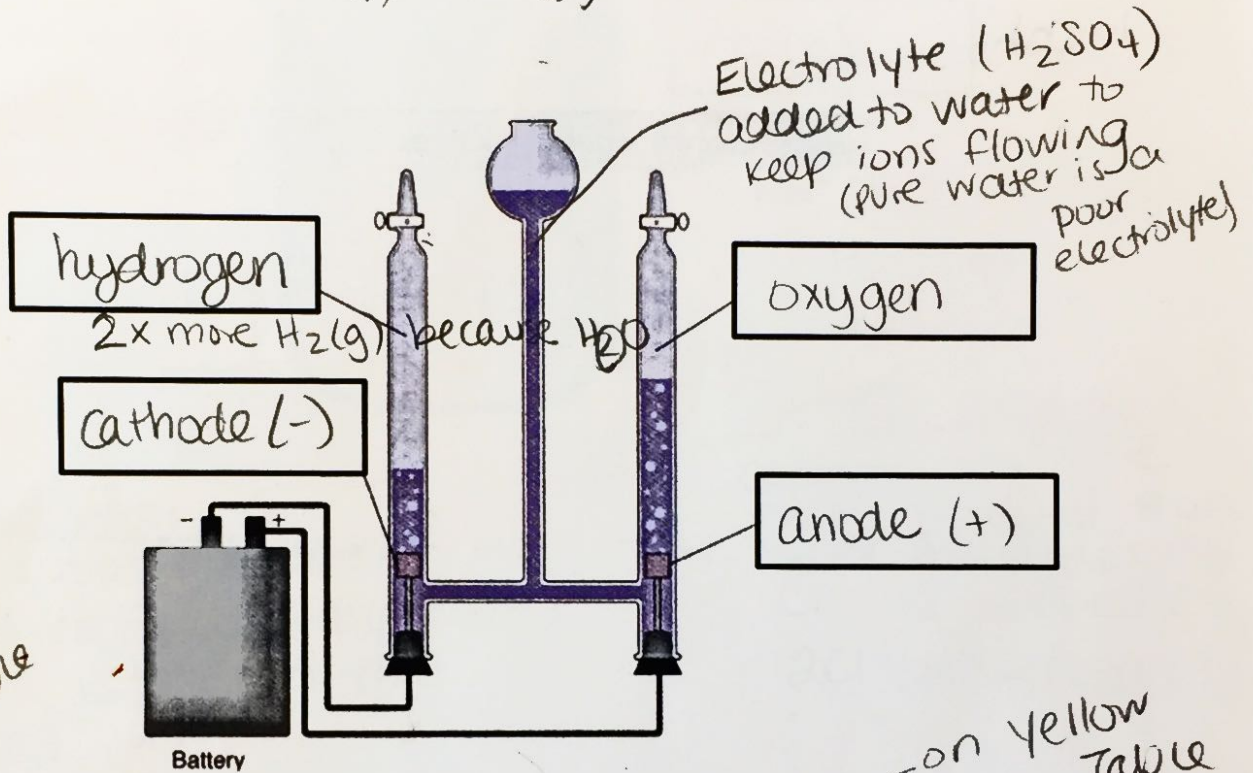 Electrolyte (H₂SO₄)
added to water to
keep ions flowing
(pure water is a
pour
electrolyte)
hydrogen
oxygen
2x more H₂(g) because H₂O
cathode (-)
anode (+)
- +
Battery
on yellow
Table